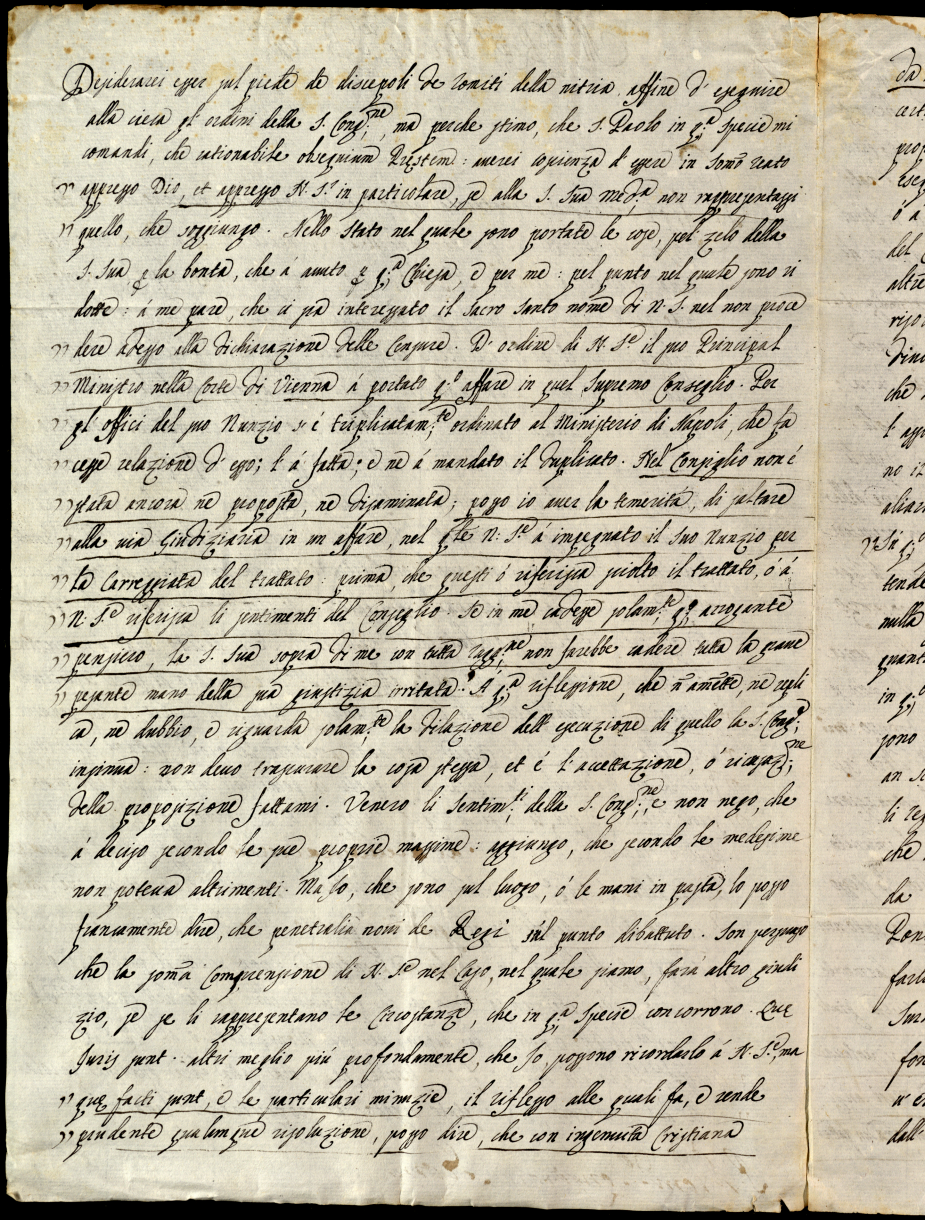 Desiderarei esser sul piede de discepoli de romiti della nitria, affine d' eseguire
alla cieca gl' ordini della S. Cong:ne, ma perche stimo, che S. Paolo in q:a specie mi
comandi, che rationabile obsequium Præstem: averei coscienza d' essere in som̃o reato
" appresso Dio, et appresso N. S.re in particolare, se alla S. Sua med:a non rappresentassi
" quello, che soggiungo. Nello stato nel quale sono portate le cose, pel zelo della
S. Sua p la bontà, che á avuto p q:a Chiesa, e per me: pel punto nel quale sono ri
dotte: á me pare, che ci sia interessato il sacro santo nome di N. S. nel non proce
" dere adesso alla dichiarazione delle Censure. D' ordine di N. S.re il suo Principal
" Ministro nella Corte di Vienna á portato q:o affare in quel Supremo Conseglio. Per
" gl' offici del suo Nunzio s' é triplicatam:te ordinato al Ministerio di Napoli, che fa
" cesse relazione d' esso; l' á fatta; e ne á mandato il duplicato. Nel Consiglio non é
" stata ancora ne proposta, ne disaminata; posso io aver la temerità, di saltare
" alla via Giudiziaria in un affare, nel q:le N: S.re á impegnato il suo Nunzio per
" la Carreggiata del trattato: prima, che questi ó riferisca sciolto il trattato, ó á
" N: S.re riferisca li sentimenti del Consiglio. Se in me, cadesse solam:te q:o arrogante
" pensiero, la S. Sua sopra di me con tutta ragg:ne non farebbe cadere tutta la grave
" pesante mano della sua giustizia irritata. Á q:a riflessione, che nõ amette, ne repli
ca, ne dubbio, e riguarda solam:te la dilazione dell' esecuzione di quello la S. Cong:ne
insinua: non devo trascurare la cosa stessa, et é l' accettazione, ó ricusaz:ne
della proposizione fattami. Venero li sentim:ti della S. Cong:ne, e non nego, che
á deciso secondo le sue proprie massime: aggiungo, che secondo le medesime
non poteva altrimenti. Ma Io, che sono sul luogo, ó le mani in pasta, lo posso
francamente dire, che penetralia novi de Regi sul punto dibattuto. Son persuaso
che la som̃a Comprensione di N. S.re nel Caso, nel quale siamo, fará altro giudi
zio, se se li rappresentano le Circostanze, che in q:a specie concorrono. Quæ
Iuris sunt. altri meglio più profondamente, che Io, possono ricordarlo á N. S.re, ma
" quæ facti sunt, e le particulari minuzie, il riflesso alle quali fa, e rende
" prudente qualunque risoluzione, posso dire, che con ingenuità Cristiana